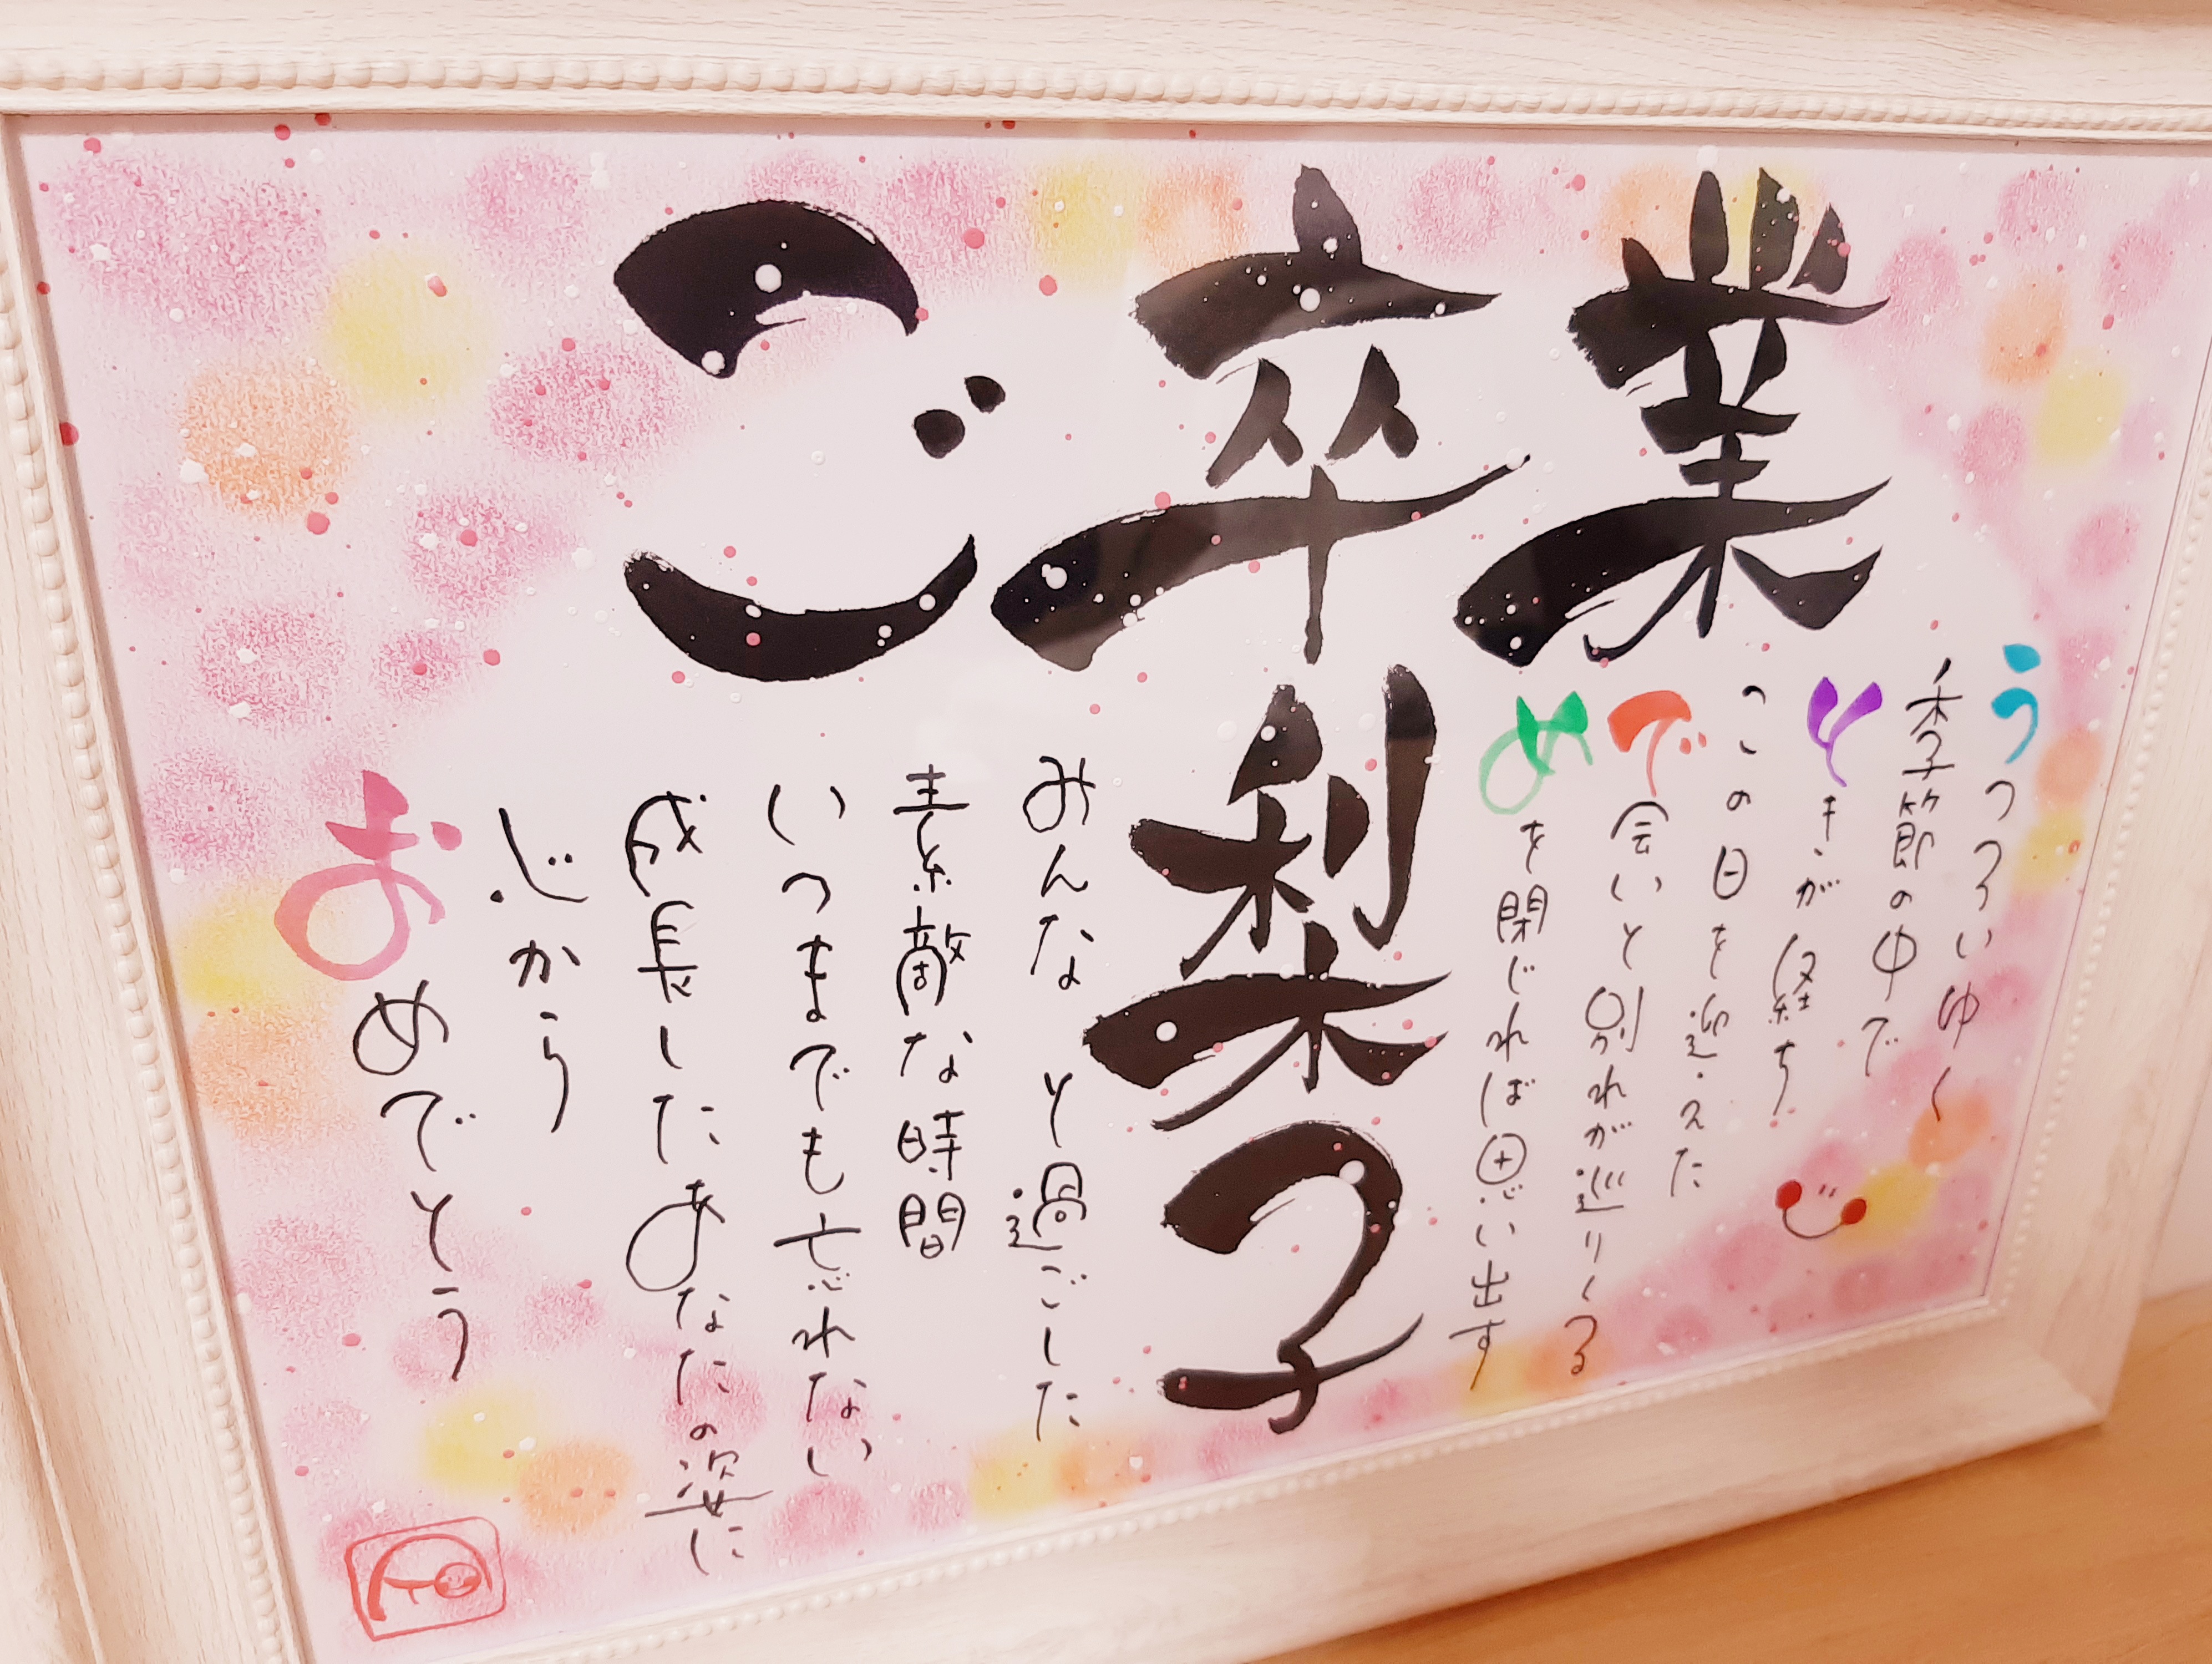 ご卒業
うつろいゆく
季節の中で
ときが経ち
この日を迎えた
で会いと別れが巡りくる
めを閉じれば思い出す
梨子
みんなと過ごした
素敵な時間
いつまでも忘れない
成長したあなたの姿に
心から
おめでとう